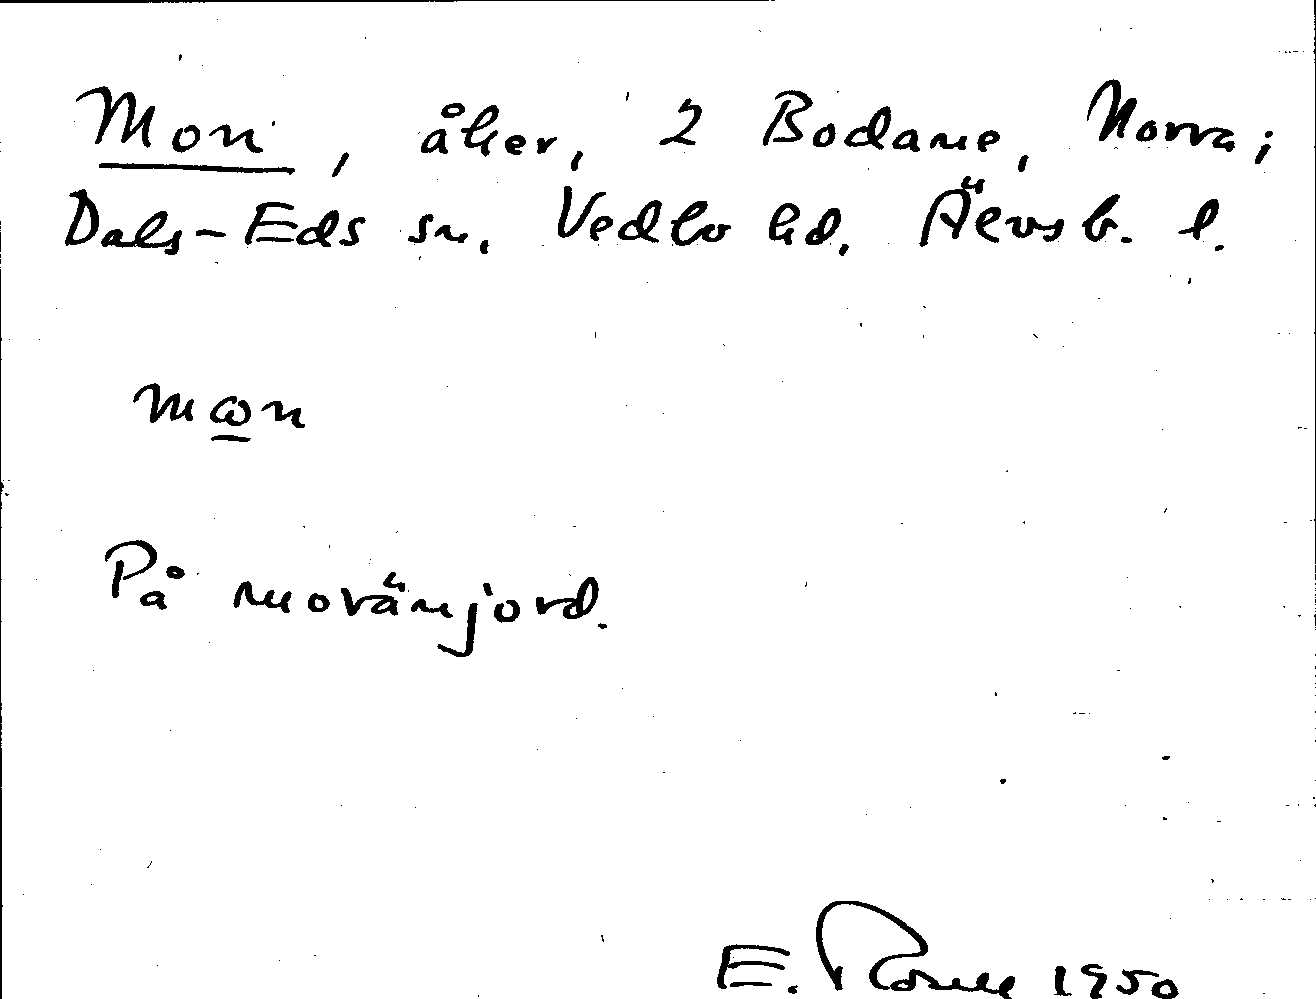 Mon, åker, 2 Bodane, Norra;
Dals-Eds sn. Vedbo hd. Älvsb. l.
mωn
På movänjord.
E. 1950